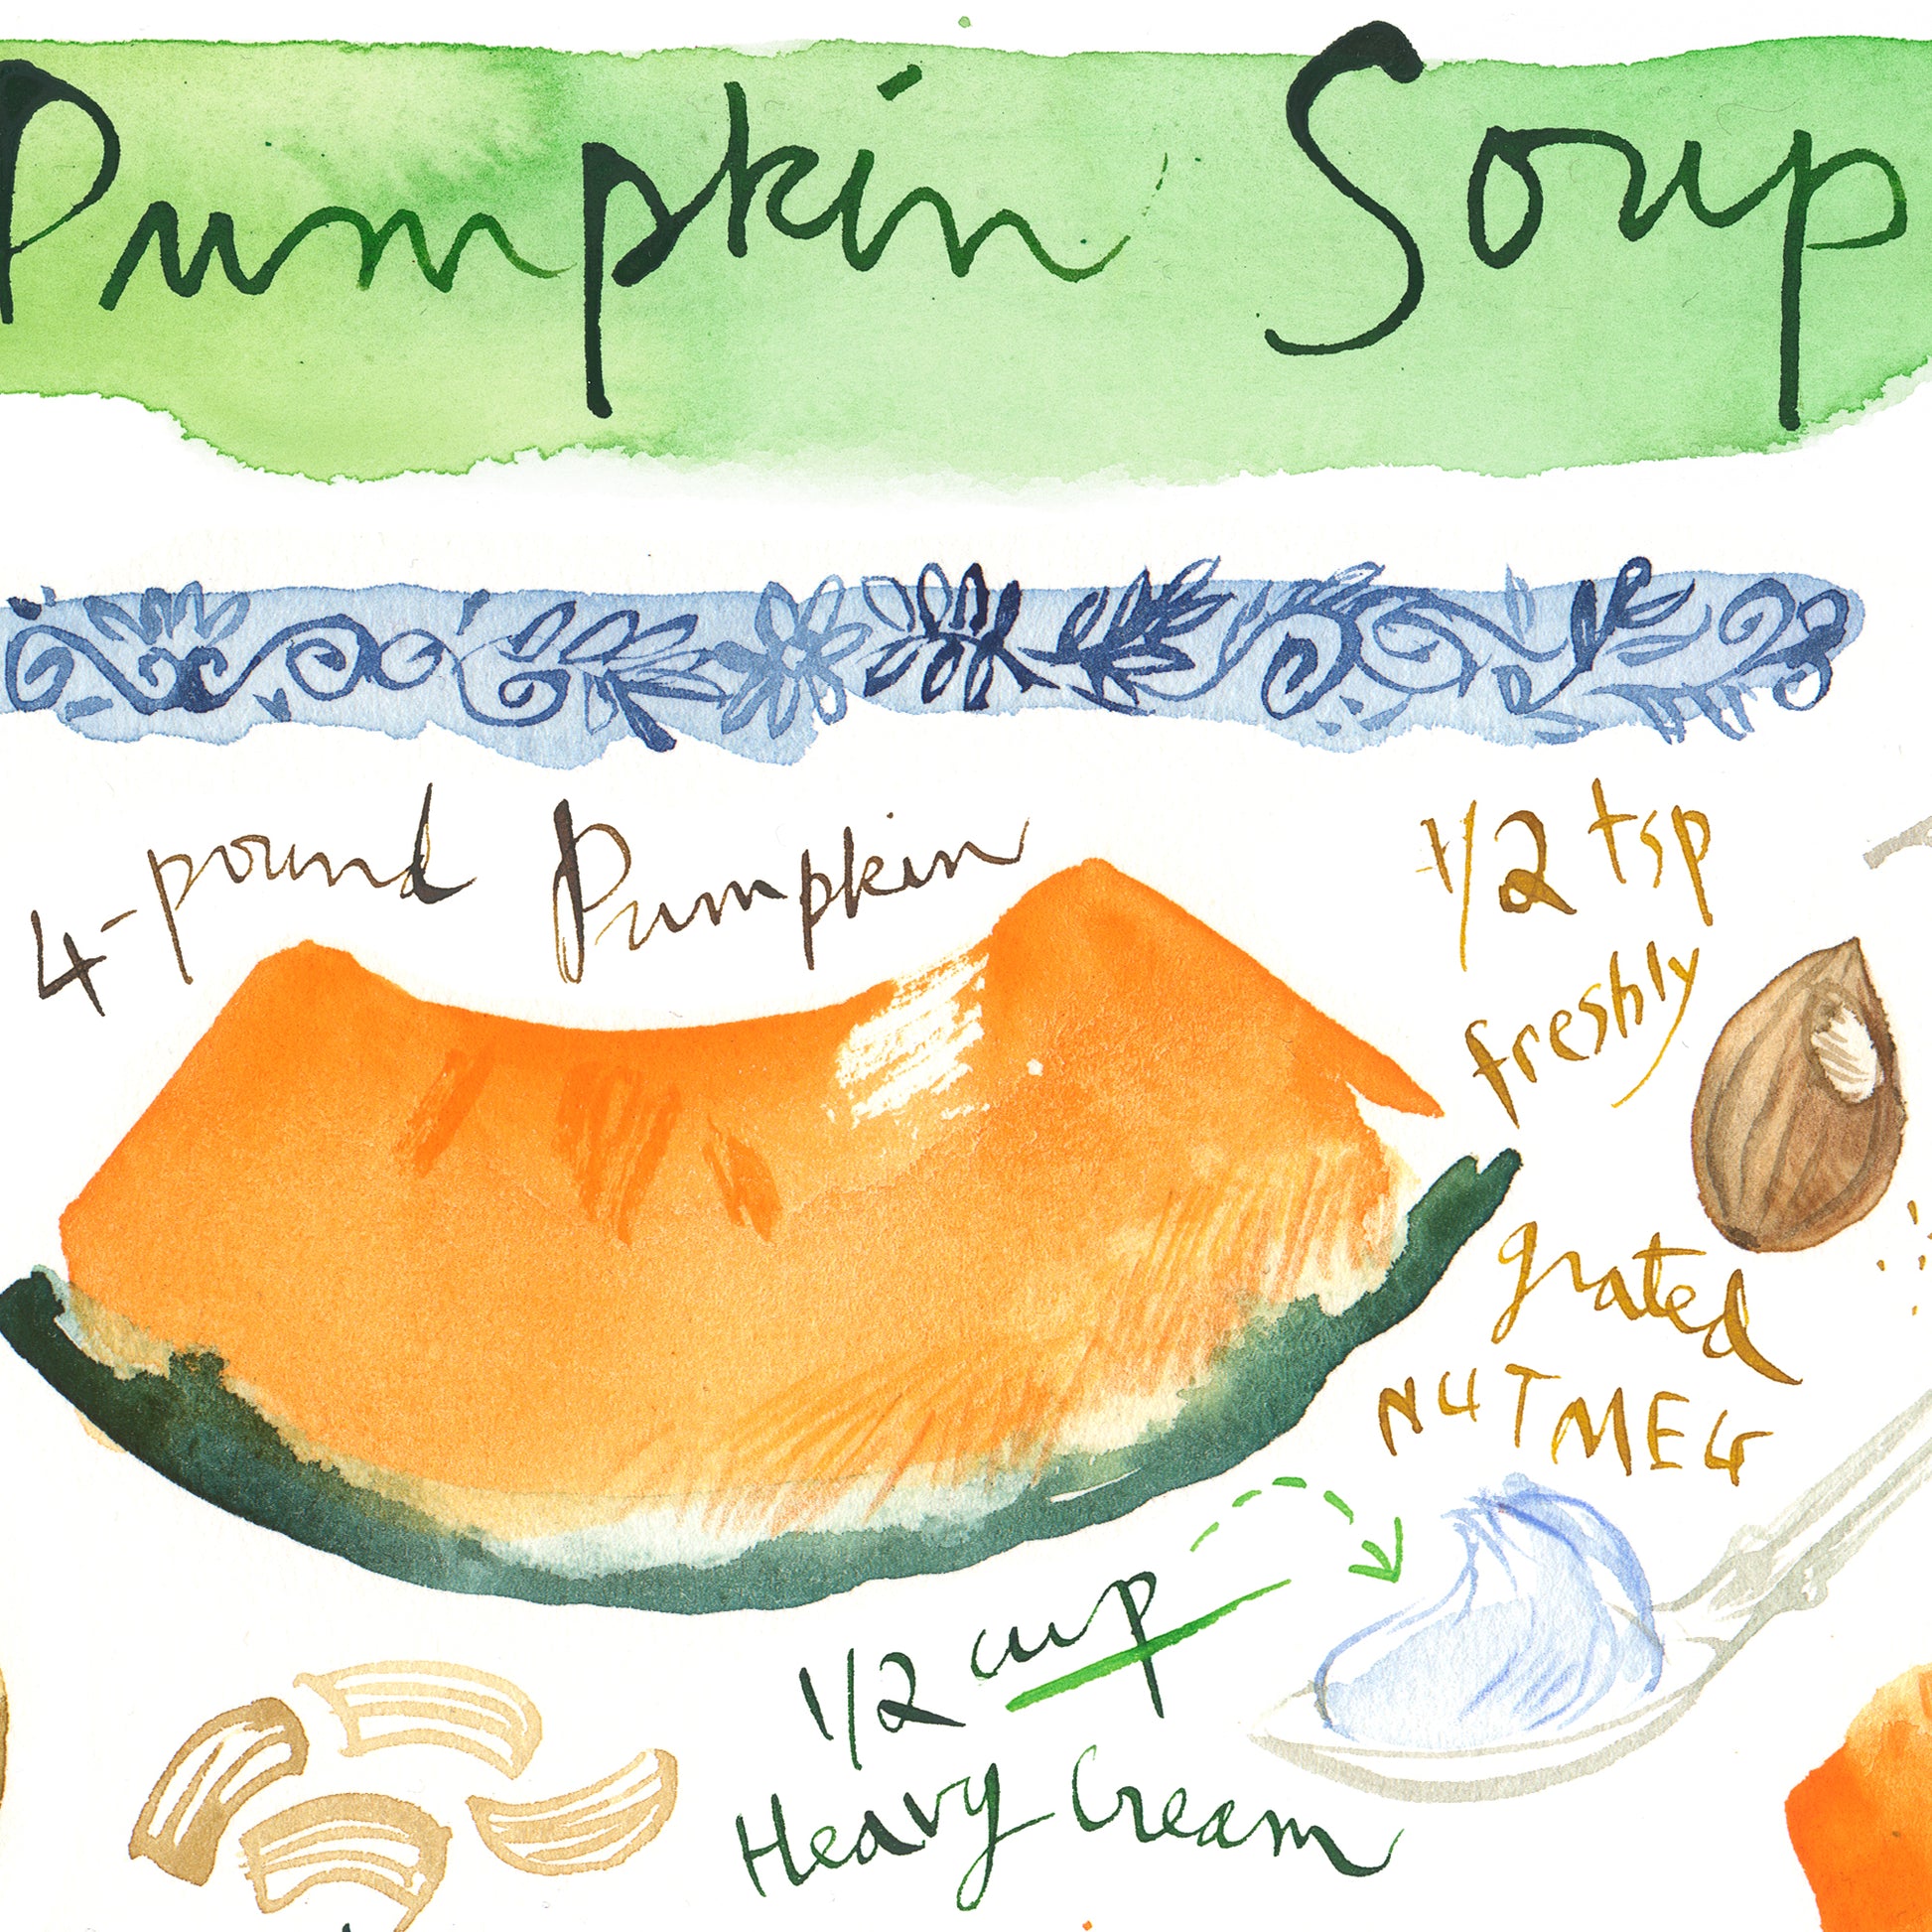 Pumpkin Soup
4-pound Pumpkin
1/2 tsp
freshly
grated
NUTMEG
1/2 cup
Heavy Cream